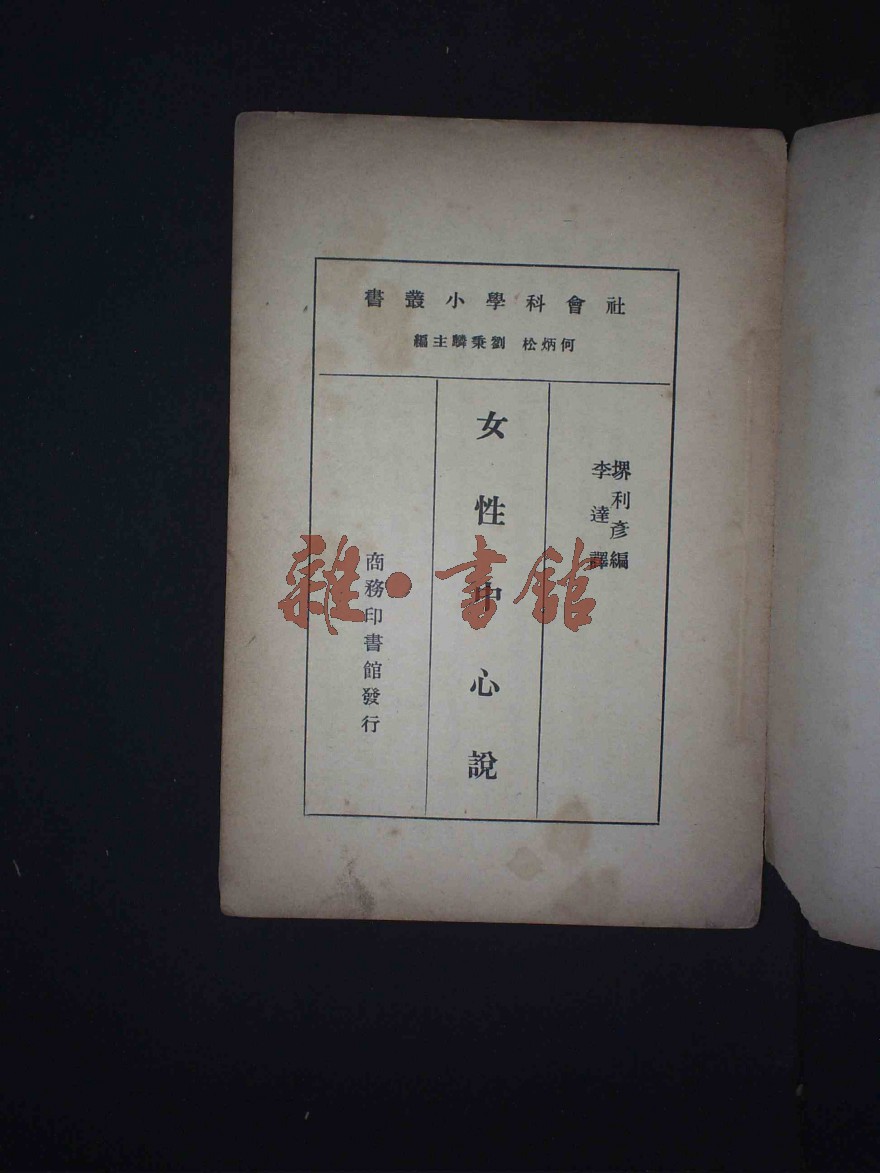 社會科學小叢書
何炳松 劉秉麟主編
堺利彥編
李達譯
女性中心說
商務印書館發行
雜·書館